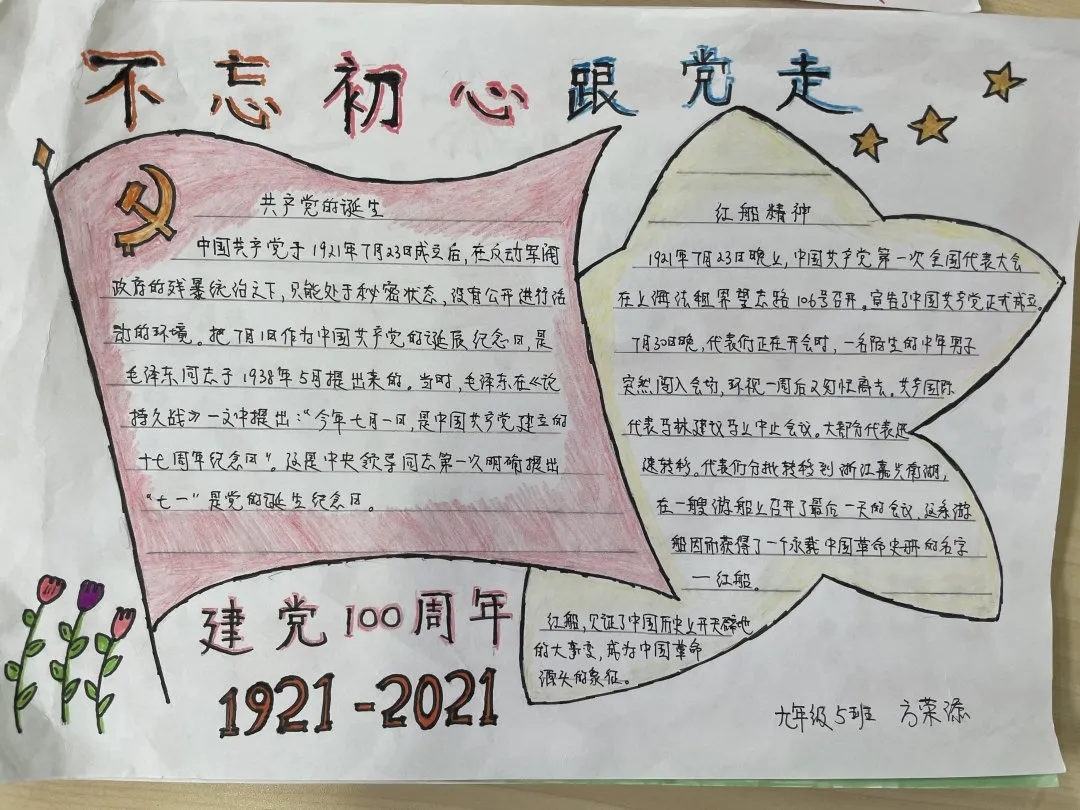 不忘初心跟党走
共产党的诞生
中国共产党于1921年7月23日成立后,在反动军阀
政府的残暴统治之下,只能处于秘密状态,没有公开进行活
动的环境。把7月1日作为中国共产党的诞辰纪念日,是
毛泽东同志于1938年5月提出来的。当时,毛泽东在《论
持久战》一文中提出:“今年七月一日,是中国共产党建立的
十七周年纪念日”。这是中央领导同志第一次明确提出
“七一”是党的诞生纪念日。
建党100周年
1921-2021
红船精神
1921年7月23日晚上,中国共产党第一次全国代表大会
在上海法租界望志路106号召开。宣告了中国共产党正式成立。
7月30日晚,代表们正在开会时,一名陌生的中年男子
突然闯入会场,环视一周后又匆忙离去。共产国际
代表马林建议马上中止会议。大部分代表迅
速转移。代表们分批转移到浙江嘉兴南湖,
在一艘游船上召开了最后一天的会议,这条游
船因而获得了一个永载中国革命史册的名字
—红船。
红船,见证了中国历史上开天辟地
的大事变,成为中国革命
源头的象征。
九年级5班 方荣添